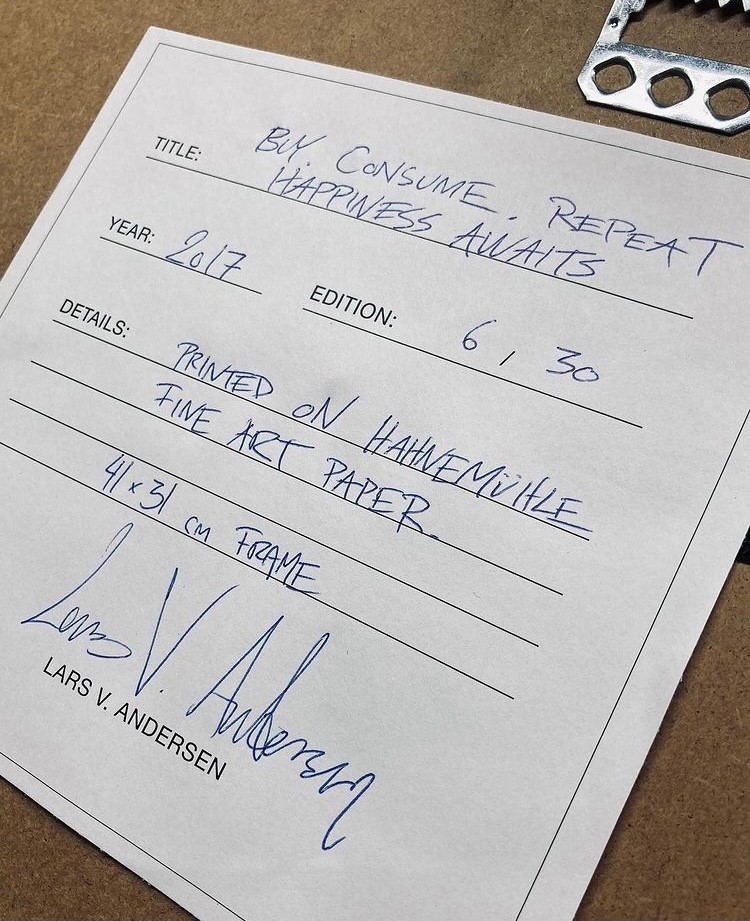 TITLE: BUY. CONSUME. REPEAT
HAPPINESS AWAITS
YEAR: 2017 EDITION: 6 / 30
DETAILS: PRINTED ON HAHNEMÜHLE
FINE ART PAPER.
41x31 cm FRAME
Lars V. Andersen
LARS V. ANDERSEN